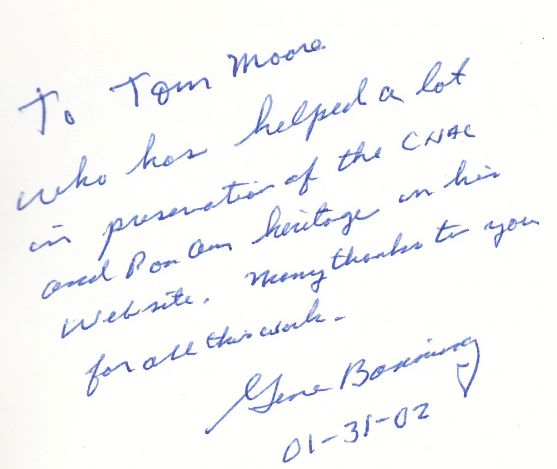 To Tom Moore
who has helped a lot
in preservation of the CNAC
and Pan Am heritage in his
Website. Many thanks to you
for all this work.
Gene Banning
01-31-02